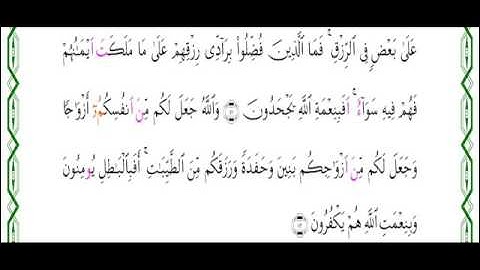 عَلَىٰ بَعْضٍ فِى ٱلرِّزْقِ ۚ فَمَا ٱلَّذِينَ فُضِّلُوا۟ بِرَآدِّى رِزْقِهِمْ عَلَىٰ مَا مَلَكَتَ ايْمَٰنُهُمْ
فَهُمْ فِيهِ سَوَآءٌ ۚ اَفَبِنِعْمَةِ ٱللَّهِ يَجْحَدُونَ ۝ وَٱللَّهُ جَعَلَ لَكُم مِّنَ انفُسِكُمُۥٓ أَزْوَٰجًا
وَجَعَلَ لَكُم مِّنَ ازْوَٰجِكُم بَنِينَ وَحَفَدَةً وَرَزَقَكُم مِّنَ ٱلطَّيِّبَٰتِ ۚ أَفَبِٱلْبَٰطِلِ يُومِنُونَ
وَبِنِعْمَتِ ٱللَّهِ هُمْ يَكْفُرُونَ ۝